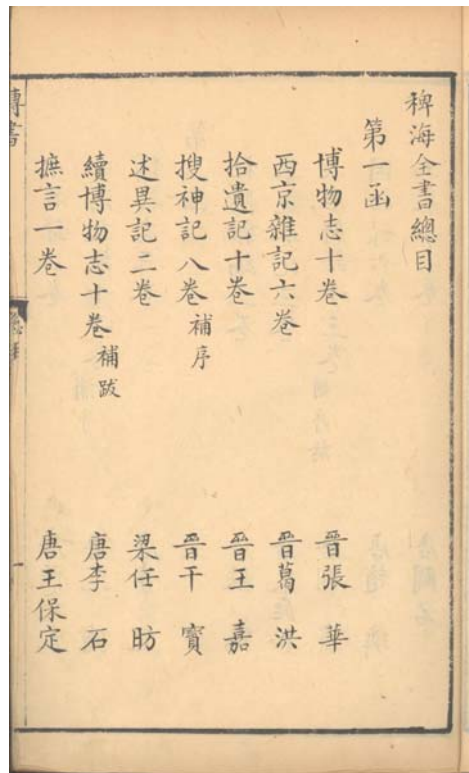 稗海全書總目
第一函
博物志十卷 晉張華
西京雜記六卷 晉葛洪
拾遺記十卷 晉王嘉
搜神記八卷補序 晉干寶
述異記二卷 梁任昉
續博物志十卷補跋 唐李石
摭言一卷 唐王保定